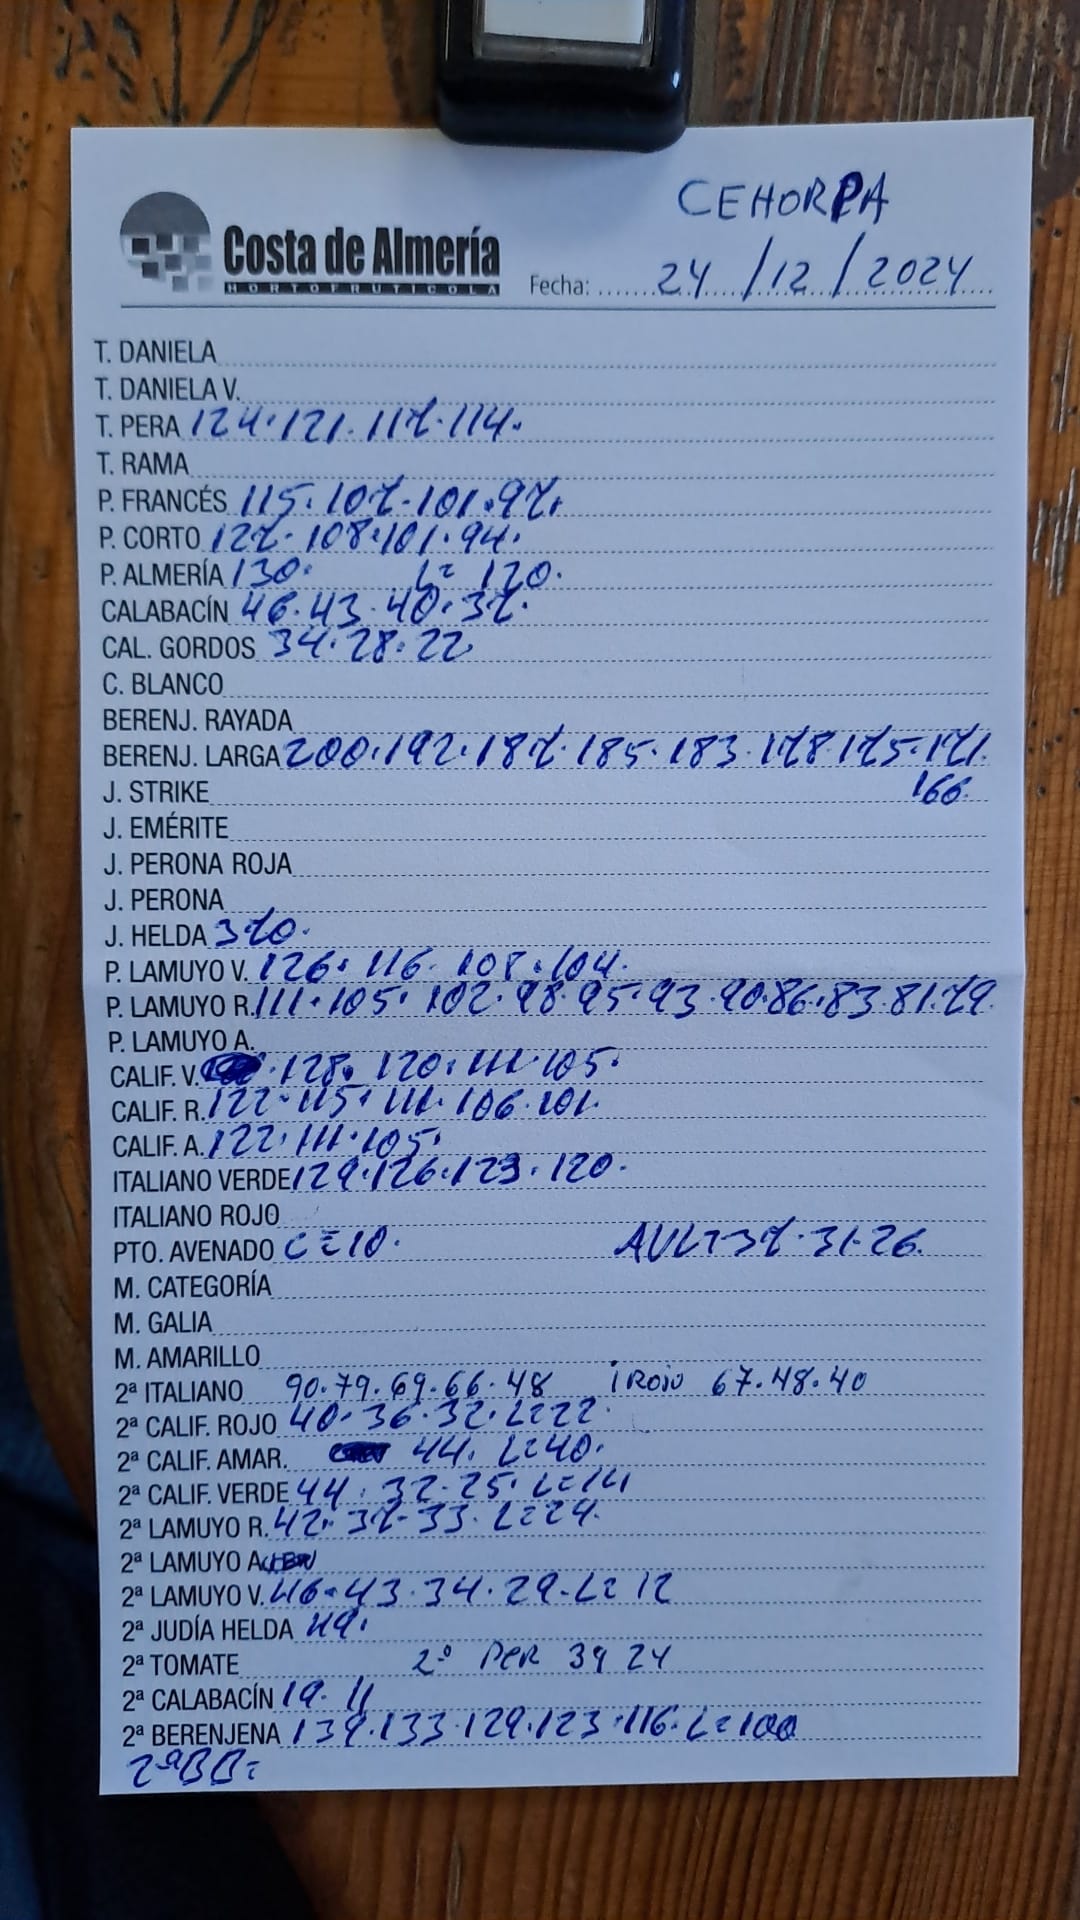 CEHORPA
Costa de Almería
HORTOFRUTICOLA
Fecha: 24/12/2024
T. DANIELA
T. DANIELA V.
T. PERA 124.121.117.114.
T. RAMA
P. FRANCÉS 115.107.101.97.
P. CORTO 127.108.101.94.
P. ALMERÍA 130. L= 120.
CALABACÍN 46.43.40.37.
CAL. GORDOS 34.28.22
C. BLANCO
BERENJ. RAYADA
BERENJ. LARGA 200.192.187.185.183.178.175.171.
166.
J. STRIKE
J. EMÉRITE
J. PERONA ROJA
J. PERONA
J. HELDA 370.
P. LAMUYO V. 126.116.108.104.
P. LAMUYO R. 111.105.102.98.95.93.90.86.83.81.79.
P. LAMUYO A.
CALIF. V. 128.120.111.105.
CALIF. R. 122.115.111.106.101.
CALIF. A. 122.111.105.
ITALIANO VERDE 129.126.123.120.
ITALIANO ROJO
PTO. AVENADO C=10. 37.31.26.
M. CATEGORÍA
M. GALIA
M. AMARILLO
2ª ITALIANO 90.79.69.66.48 i Rojo 67.48.40
2ª CALIF. ROJO 40.36.32.L=22.
2ª CALIF. AMAR. 44. L=40.
2ª CALIF. VERDE 44.32.25.L=14
2ª LAMUYO R. 42.37.33.L=24.
2ª LAMUYO A.
2ª LAMUYO V. 46.43.34.29.L=12
2ª JUDÍA HELDA 49.
2ª TOMATE 2º PER 39 24
2ª CALABACÍN 19.11
2ª BERENJENA 139.133.129.123.116.L=100
2ªBB=